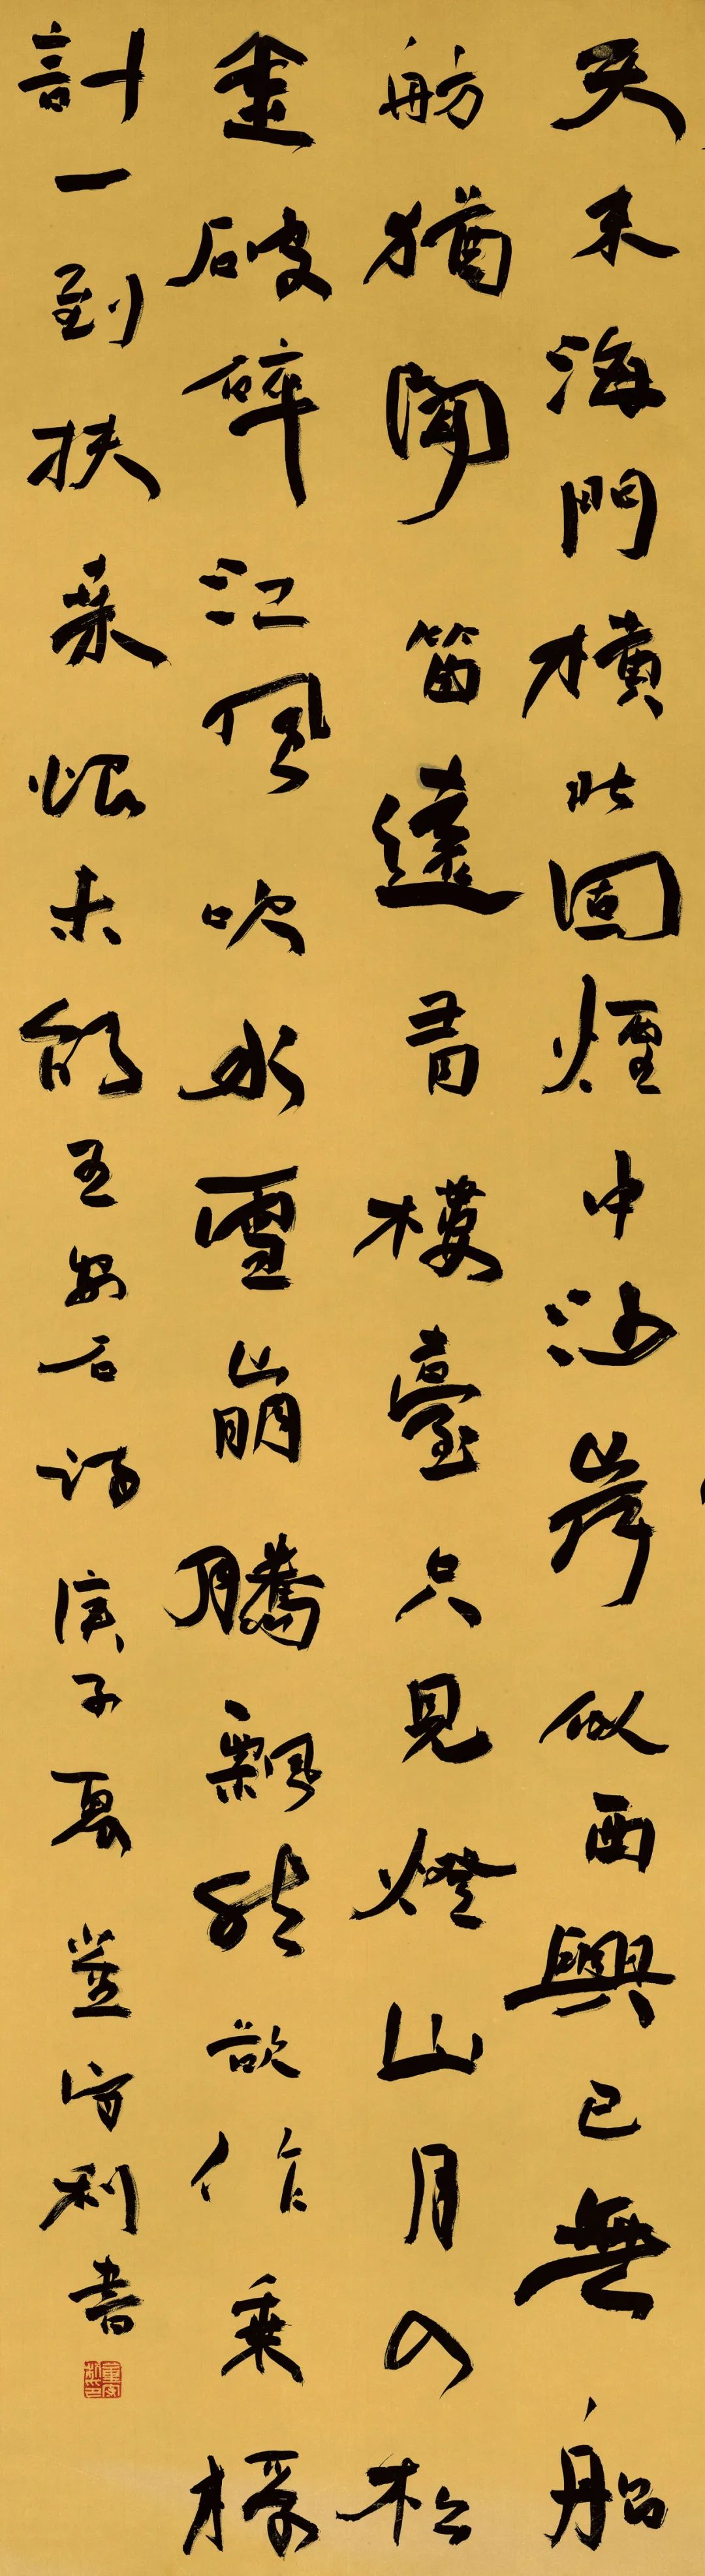 天末海門橫北固煙中沙岸似西興已無船
舫猶聞笛遠有樓臺只見燈山月入松
金破碎江風吹水雪崩騰飄然欲作乘桴
計一到扶桑恨未能王安石詩庚子夏守利書